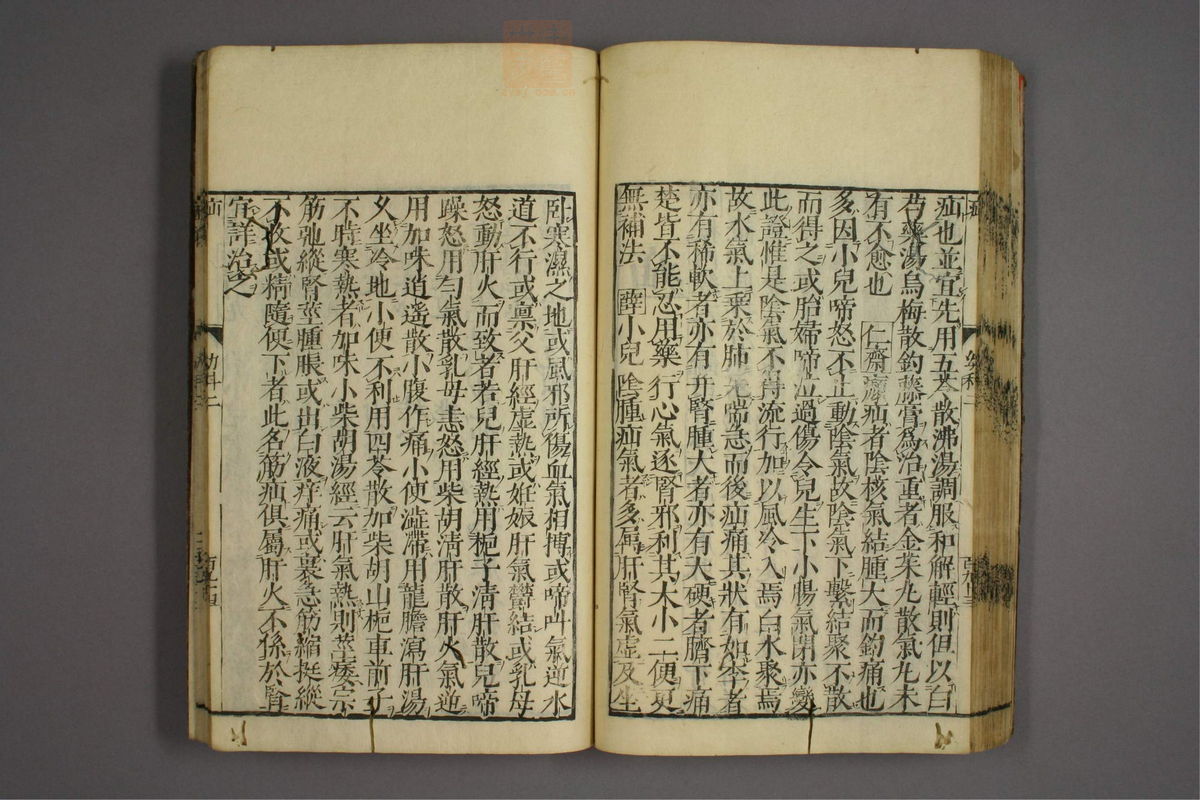 疝也並宜先用五苓散沸湯調服和解輕則但以白
芍藥湯烏梅散鈎藤膏爲治重者金茱丸散氣丸未
有不愈也 仁齋 㿗疝者陰核氣結腫大而鈎痛也
多因小兒啼怒不止動陰氣故陰氣下擊結聚不散
而得之或胎婦啼泣過傷令兒生下小腸氣閉亦變
此證惟是陰氣不得流行加以風冷入焉白水聚焉
故水氣上乗於肺先喘急而後疝痛其狀有如李者
亦有稀軟者亦有幷腎腫大者亦有大硬者臍下痛
楚皆不能忍用藥行心氣逐腎邪利其大小二便更
無補法 薛 小兒陰腫疝氣者多屬肝腎氣虛及坐
卧寒濕之地或風邪所傷血氣相搏或啼叫氣逆水
道不行或禀父肝經虛熱或姙娠肝氣鬱結或乳母
怒動肝火而致者若兒肝經熱用梔子清肝散兒啼
躁怒用勻氣散乳母恚怒用柴胡清肝散肝火氣逆
用加味逍遙散小腹作痛小便澁滯用龍膽瀉肝湯
久坐冷地小便不利用四苓散加柴胡山梔車前子
不時寒熱者加味小柴胡湯經云肝氣熱則莖痿宗
筋弛縱腎莖腫脹或出白液痒痛或裏急筋縮挺縱
不收或精隨便下者此名筋疝俱屬肝火不係於腎
宜詳治之
疝
幼科二